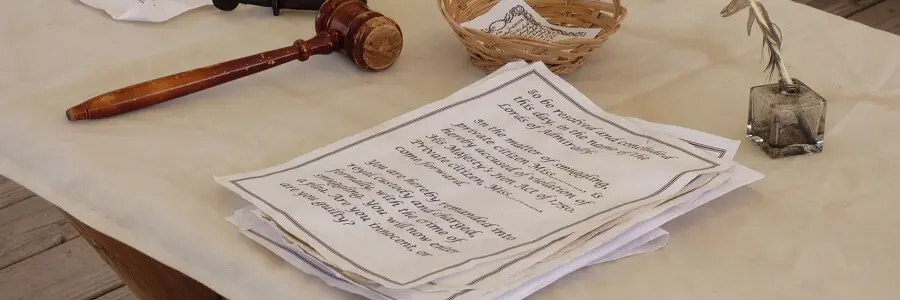 To be resolved and concluded
this day, in the name of the
Lords of Admiralty.
In the matter of smuggling,
private citizen, Miss ________, is
hereby accused of violations of
His Majesty's Iron Act of 1750.
Private citizen, Miss ________,
come forward.
You are hereby remanded into
royal custody and charged,
formally, with the crime of
smuggling. You will now enter
a plea. Are you innocent, or
are you guilty?